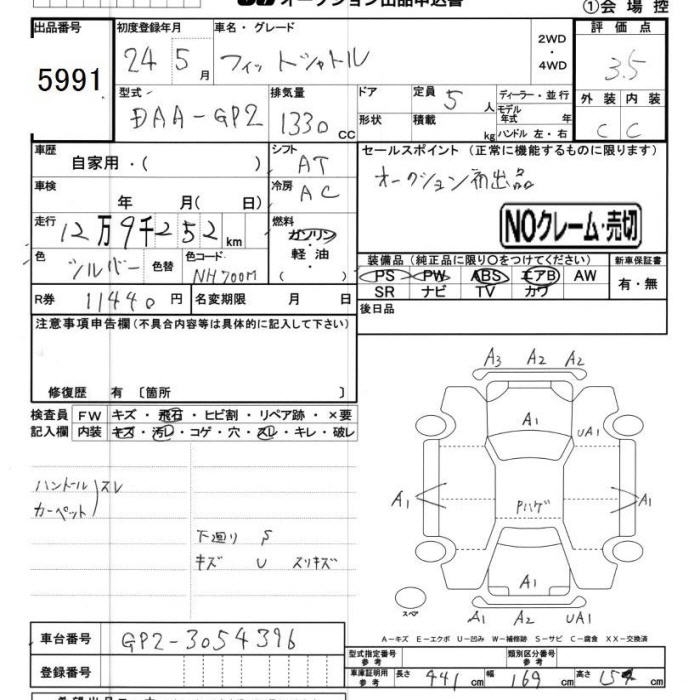 オークション出品申込書
①会場控
出品番号 初度登録年月 車名・グレード 2WD・4WD 評価点
5991 24 5月 フィットシャトル 3.5
型式 排気量 ドア 定員 5人 ディーラー・並行 外装 内装
DAA-GP2 1330cc 形状 積載 kg モデル年式 年 ハンドル 左・右 C C
車歴 シフト セールスポイント(正常に機能するものに限ります)
自家用・( ) AT オークション初出品
車検 年 月( 日) 冷房 AC
NOクレーム・売切
走行 12万9千252km 燃料 ガソリン・軽油( )
色 シルバー 色替 色コード NH700M
装備品(純正品に限り○をつけてください) 新車保証書
PS PW ABS エアB AW 有・無
SR ナビ TV カワ
R券 11440円 名変期限 月 日 後日品
注意事項申告欄(不具合内容等は具体的に記入して下さい)
修復歴 有〔箇所 〕
検査員 FW キズ・飛石・ヒビ割・リペア跡・×要
記入欄 内装 キズ・汚レ・コゲ・穴・スレ・キレ・破レ
ハンドル
カーペット
スレ
下廻り S
キズ U スリキズ
A3 A2 A2
A1
UA1
A1 PハゲA1
A1
A1 A2 UA1
スペア
A-キズ E-エクボ U-凹み W-補修跡 S-サビ C-腐食 XX-交換済
車台番号 GP2-3054396
登録番号
型式指定番号 参考 類別区分番号 参考
車庫証明用 参考 長さ 441cm 幅 169cm 高さ 154